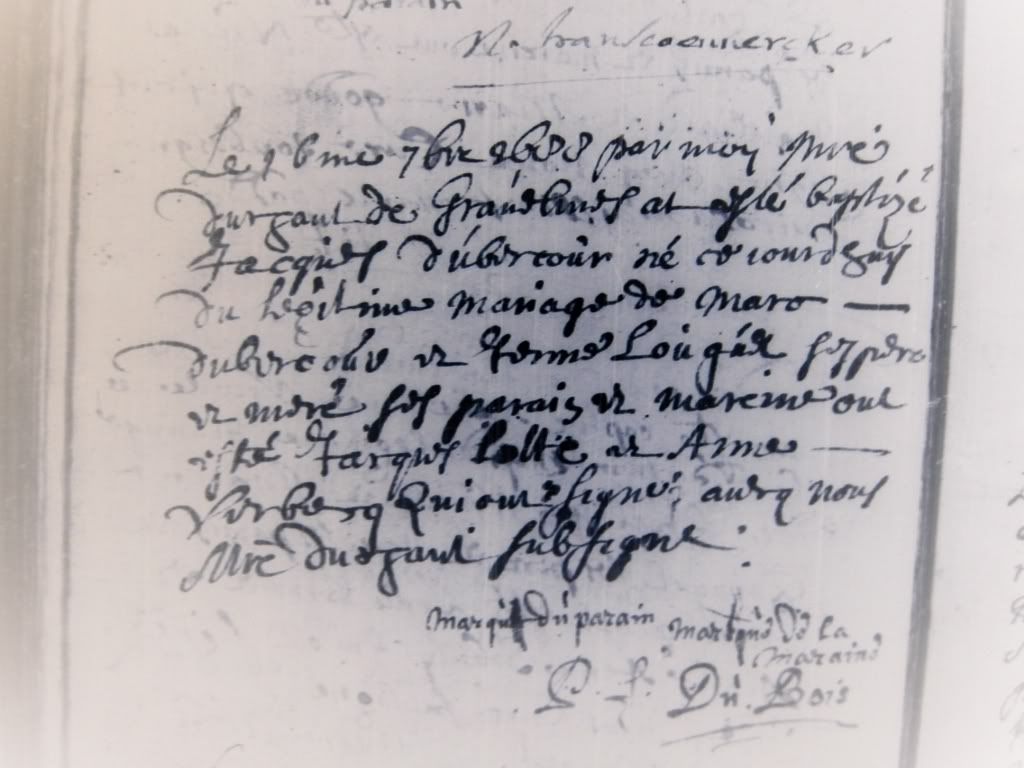 parain
Le 16me 7bre 1688 par moy Mre
Durgaut de Gravelines at esté baptizé
Jacques Dubercour né ce iourdhuy
du légitime mariage de Marc
Dubercour et Jenne Louquet ses pere
et mere ses parain et mareine ont
esté Jacques Lolte et Anne
Verbecq Qui ont signé avecq nous
Mre Durgaut subsigné
Marque du parain Marque de la
Maraine
P. f. Du. Bois